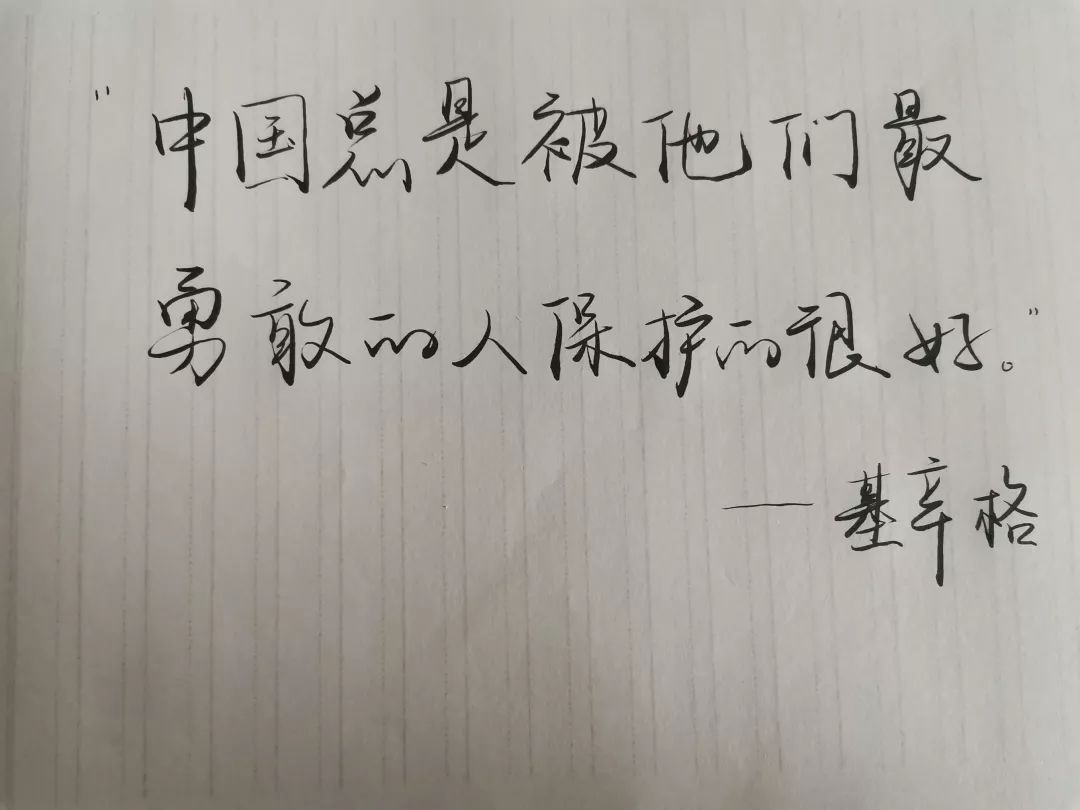 "中国总是被他们最
勇敢的人保护的很好。"
——基辛格